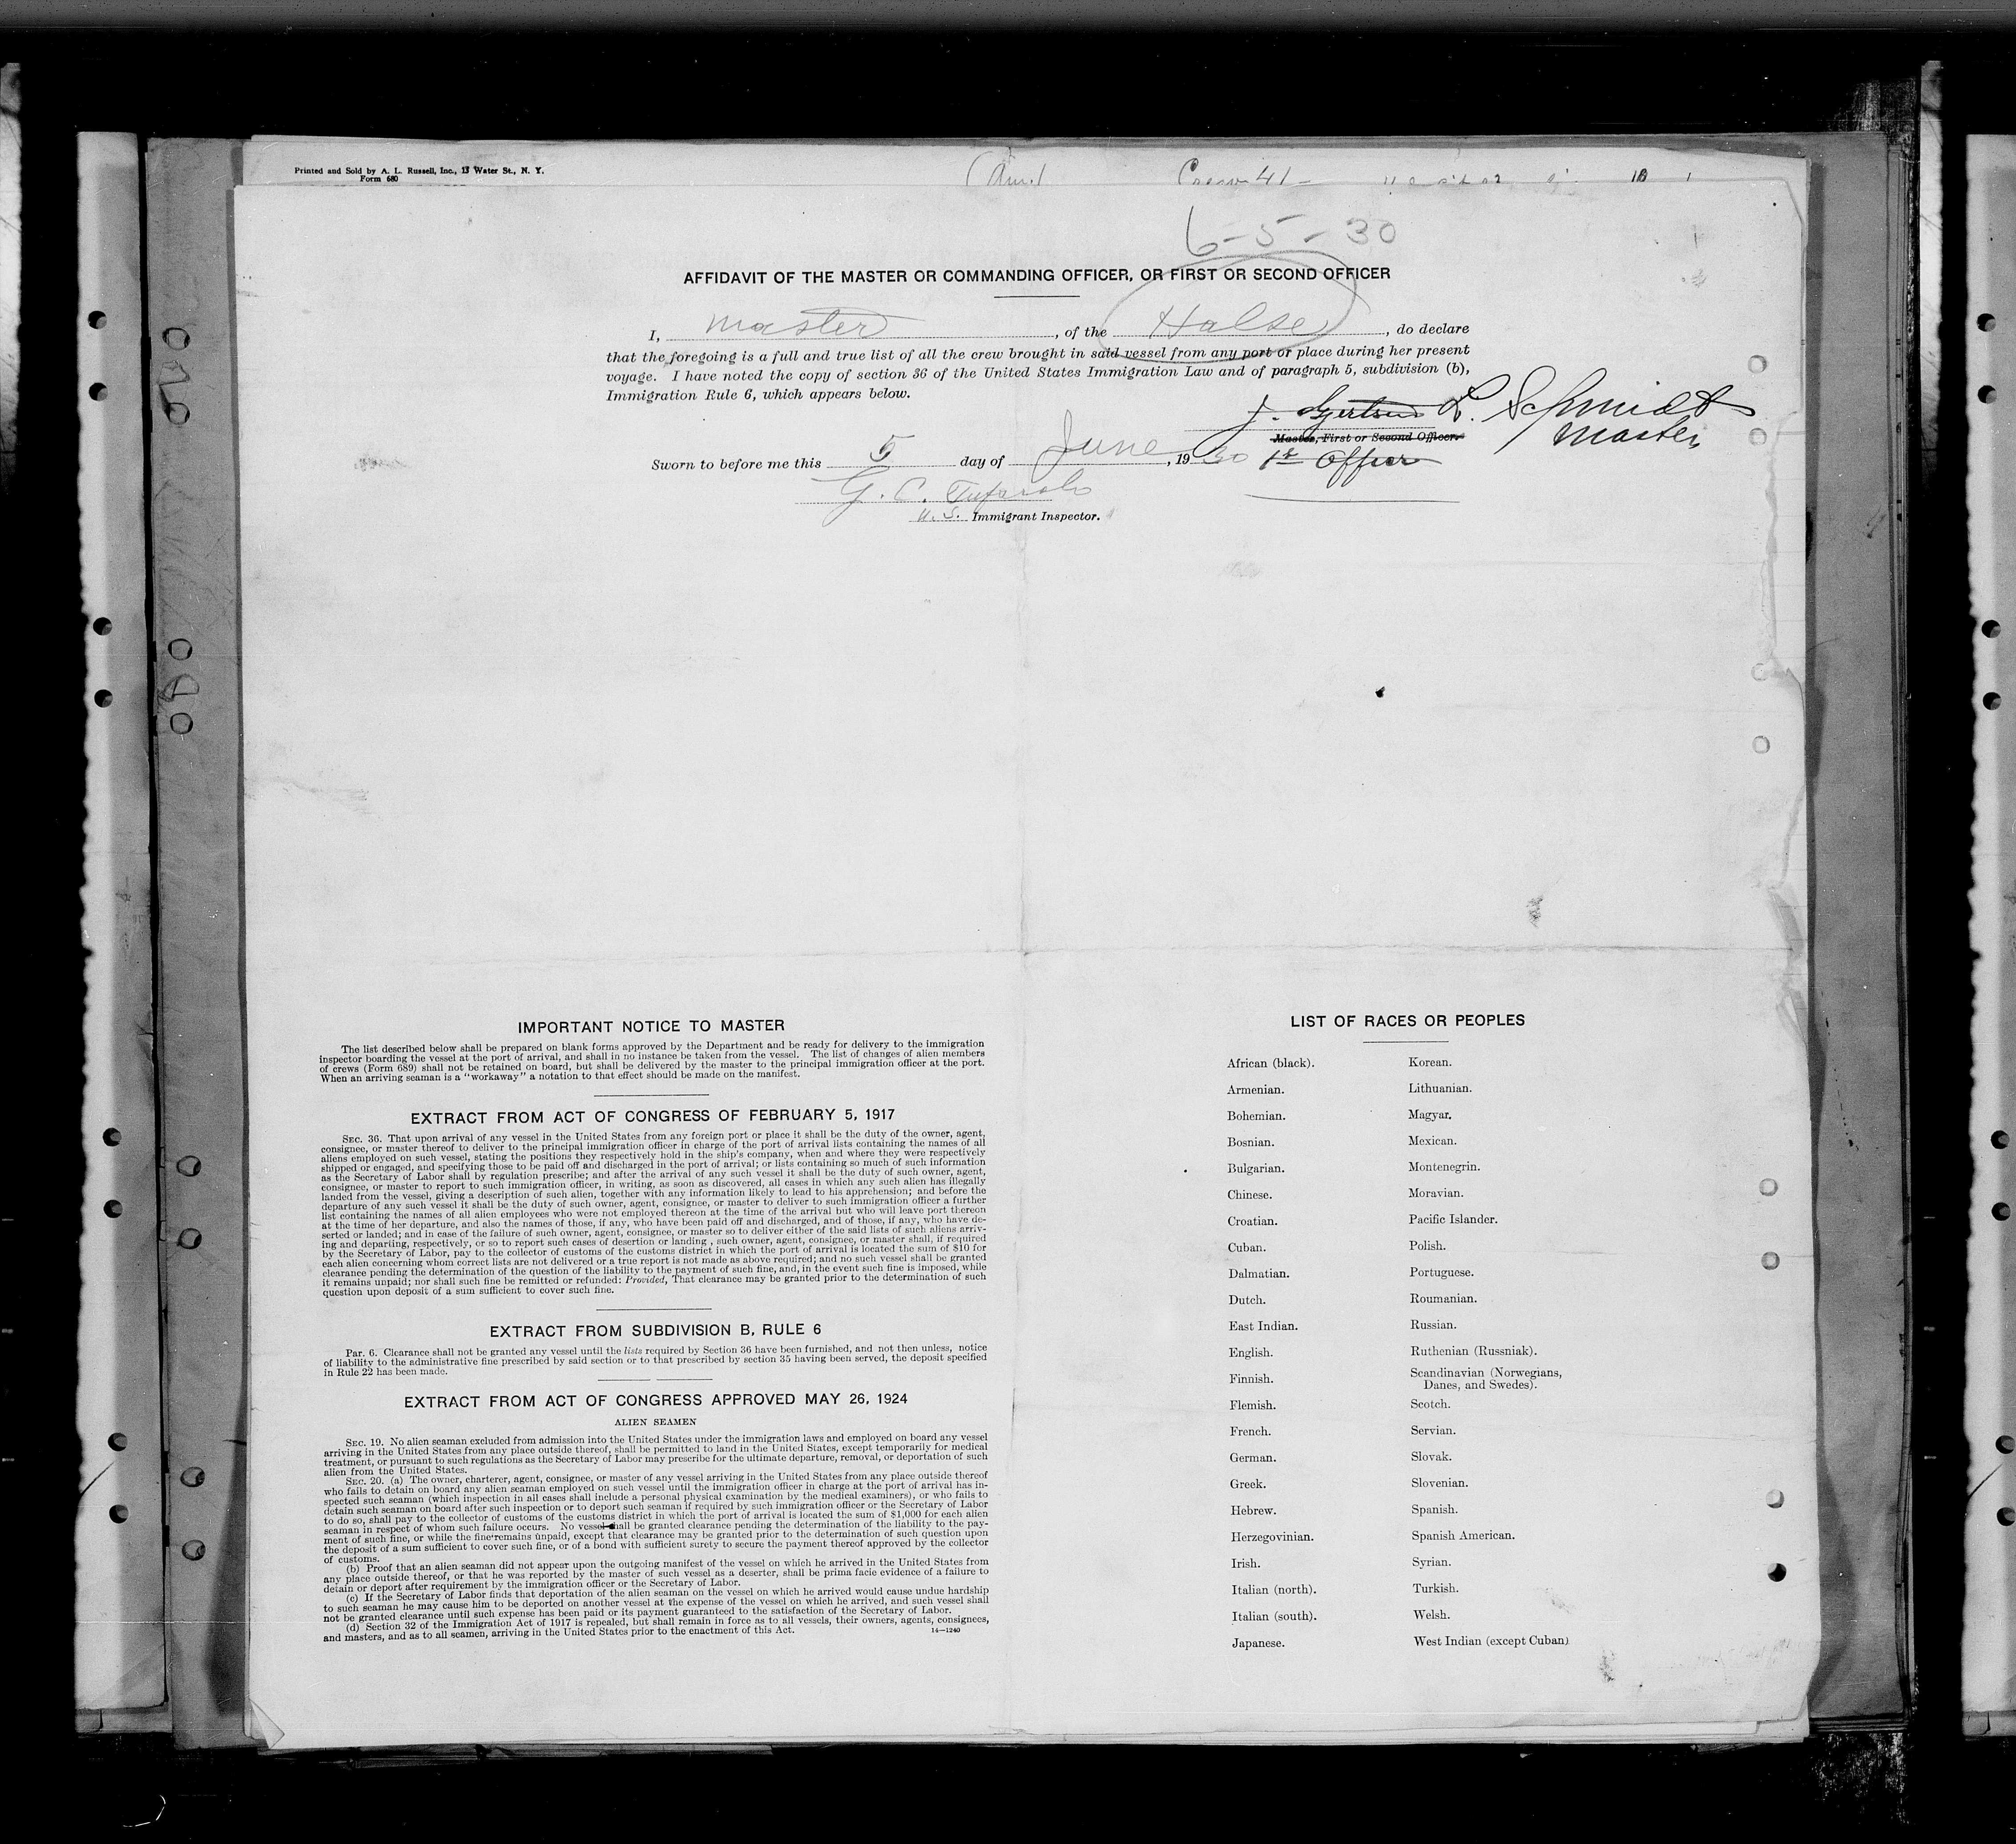 Printed and Sold by A. L. Russell, Inc., 13 Water St., N. Y.
Form 680
(Am.) Crew 41 –
6-5-30
AFFIDAVIT OF THE MASTER OR COMMANDING OFFICER, OR FIRST OR SECOND OFFICER
I, master, of the Halse, do declare
that the foregoing is a full and true list of all the crew brought in said vessel from any port or place during her present
voyage. I have noted the copy of section 36 of the United States Immigration Law and of paragraph 5, subdivision (b),
Immigration Rule 6, which appears below.
L. Schmidt
Master, First or Second Officer.
Master
Sworn to before me this 5 day of June, 1930 1st Officer
G. C.
U.S. Immigrant Inspector.
IMPORTANT NOTICE TO MASTER
The list described below shall be prepared on blank forms approved by the Department and be ready for delivery to the immigration
inspector boarding the vessel at the port of arrival, and shall in no instance be taken from the vessel. The list of changes of alien members
of crews (Form 689) shall not be retained on board, but shall be delivered by the master to the principal immigration officer at the port.
When an arriving seaman is a "workaway" a notation to that effect should be made on the manifest.
EXTRACT FROM ACT OF CONGRESS OF FEBRUARY 5, 1917
SEC. 36. That upon arrival of any vessel in the United States from any foreign port or place it shall be the duty of the owner, agent,
consignee, or master thereof to deliver to the principal immigration officer in charge of the port of arrival lists containing the names of all
aliens employed on such vessel, stating the positions they respectively hold in the ship's company, when and where they were respectively
shipped or engaged, and specifying those to be paid off and discharged in the port of arrival; or lists containing so much of such information
as the Secretary of Labor shall by regulation prescribe; and after the arrival of any such vessel it shall be the duty of such owner, agent,
consignee, or master to report to such immigration officer, in writing, as soon as discovered, all cases in which any such alien has illegally
landed from the vessel, giving a description of such alien, together with any information likely to lead to his apprehension; and before the
departure of any such vessel it shall be the duty of such owner, agent, consignee, or master to deliver to such immigration officer a further
list containing the names of all alien employees who were not employed thereon at the time of the arrival but who will leave port thereon
at the time of her departure, and also the names of those, if any, who have been paid off and discharged, and of those, if any, who have de-
serted or landed; and in case of the failure of such owner, agent, consignee, or master so to deliver either of the said lists of such aliens arriv-
ing and departing, respectively, or so to report such cases of desertion or landing , such owner, agent, consignee, or master shall, if required
by the Secretary of Labor, pay to the collector of customs of the customs district in which the port of arrival is located the sum of $10 for
each alien concerning whom correct lists are not delivered or a true report is not made as above required; and no such vessel shall be granted
clearance pending the determination of the question of the liability to the payment of such fine, and, in the event such fine is imposed, while
it remains unpaid; nor shall such fine be remitted or refunded: Provided, That clearance may be granted prior to the determination of such
question upon deposit of a sum sufficient to cover such fine.
EXTRACT FROM SUBDIVISION B, RULE 6
Par. 6. Clearance shall not be granted any vessel until the lists required by Section 36 have been furnished, and not then unless, notice
of liability to the administrative fine prescribed by said section or to that prescribed by section 35 having been served, the deposit specified
in Rule 22 has been made.
EXTRACT FROM ACT OF CONGRESS APPROVED MAY 26, 1924
ALIEN SEAMEN
SEC. 19. No alien seaman excluded from admission into the United States under the immigration laws and employed on board any vessel
arriving in the United States from any place outside thereof, shall be permitted to land in the United States, except temporarily for medical
treatment, or pursuant to such regulations as the Secretary of Labor may prescribe for the ultimate departure, removal, or deportation of such
alien from the United States.
SEC. 20. (a) The owner, charterer, agent, consignee, or master of any vessel arriving in the United States from any place outside thereof
who fails to detain on board any alien seaman employed on such vessel until the immigration officer in charge at the port of arrival has in-
spected such seaman (which inspection in all cases shall include a personal physical examination by the medical examiners), or who fails to
detain such seaman on board after such inspection or to deport such seaman if required by such immigration officer or the Secretary of Labor
to do so, shall pay to the collector of customs of the customs district in which the port of arrival is located the sum of $1,000 for each alien
seaman in respect of whom such failure occurs. No vessel shall be granted clearance pending the determination of the liability to the pay-
ment of such fine, or while the fine remains unpaid, except that clearance may be granted prior to the determination of such question upon
the deposit of a sum sufficient to cover such fine, or of a bond with sufficient surety to secure the payment thereof approved by the collector
of customs.
(b) Proof that an alien seaman did not appear upon the outgoing manifest of the vessel on which he arrived in the United States from
any place outside thereof, or that he was reported by the master of such vessel as a deserter, shall be prima facie evidence of a failure to
detain or deport after requirement by the immigration officer or the Secretary of Labor.
(c) If the Secretary of Labor finds that deportation of the alien seaman on the vessel on which he arrived would cause undue hardship
to such seaman he may cause him to be deported on another vessel at the expense of the vessel on which he arrived, and such vessel shall
not be granted clearance until such expense has been paid or its payment guaranteed to the satisfaction of the Secretary of Labor.
(d) Section 32 of the Immigration Act of 1917 is repealed, but shall remain in force as to all vessels, their owners, agents, consignees,
and masters, and as to all seamen, arriving in the United States prior to the enactment of this Act.
14—1240
LIST OF RACES OR PEOPLES
African (black).
Armenian.
Bohemian.
Bosnian.
Bulgarian.
Chinese.
Croatian.
Cuban.
Dalmatian.
Dutch.
East Indian.
English.
Finnish.
Flemish.
French.
German.
Greek.
Hebrew.
Herzegovinian.
Irish.
Italian (north).
Italian (south).
Japanese.
Korean.
Lithuanian.
Magyar.
Mexican.
Montenegrin.
Moravian.
Pacific Islander.
Polish.
Portuguese.
Roumanian.
Russian.
Ruthenian (Russniak).
Scandinavian (Norwegians,
Danes, and Swedes).
Scotch.
Servian.
Slovak.
Slovenian.
Spanish.
Spanish American.
Syrian.
Turkish.
Welsh.
West Indian (except Cuban)